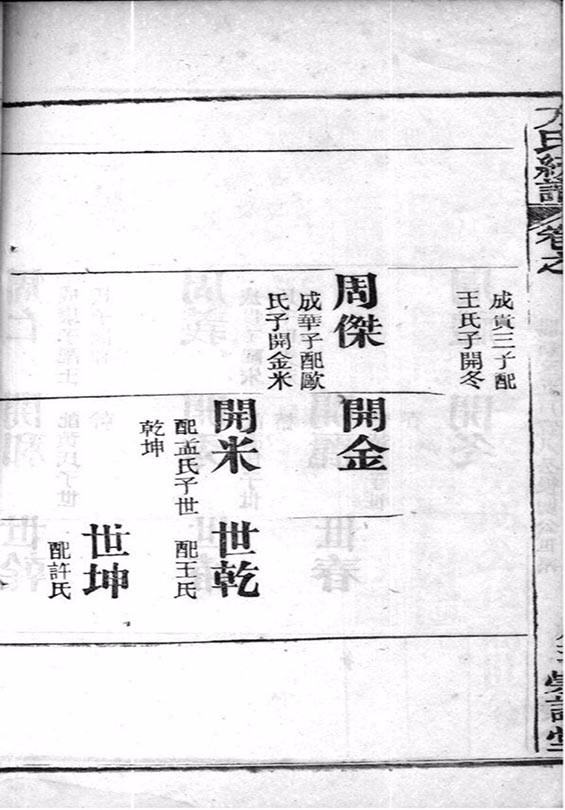 方氏綂譜
卷之
成貴三子配
王氏子開冬
周傑
成華子配歐
氏子開金米
開金
開米
配孟氏子世
乾坤
世乾
配王氏
世坤
配許氏